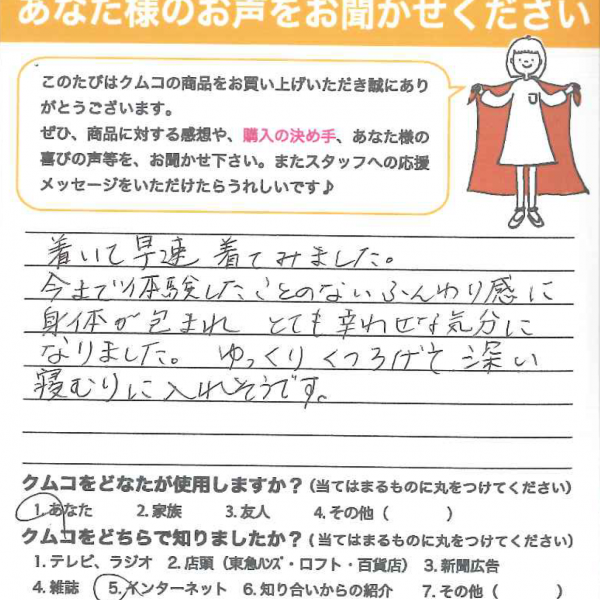 あなた様のお声をお聞かせください
このたびはクムコの商品をお買い上げいただき誠にあり
がとうございます。
ぜひ、商品に対する感想や、購入の決め手、あなた様の
喜びの声等を、お聞かせ下さい。またスタッフへの応援
メッセージをいただけたらうれしいです♪
着いて早速 着てみました。
今まで体験したことのないふんわり感に
身体が包まれ とても幸わせな気分に
なりました。 ゆっくりくつろげて 深い
寝むりに入れそうです。
クムコをどなたが使用しますか？（当てはまるものに丸をつけてください）
1. あなた 2. 家族 3. 友人 4. その他（ ）
クムコをどちらで知りましたか？（当てはまるものに丸をつけてください）
1. テレビ、ラジオ 2. 店頭（東急ハンズ・ロフト・百貨店） 3. 新聞広告
4. 雑誌 5. インターネット 6. 知り合いからの紹介 7. その他（ ）